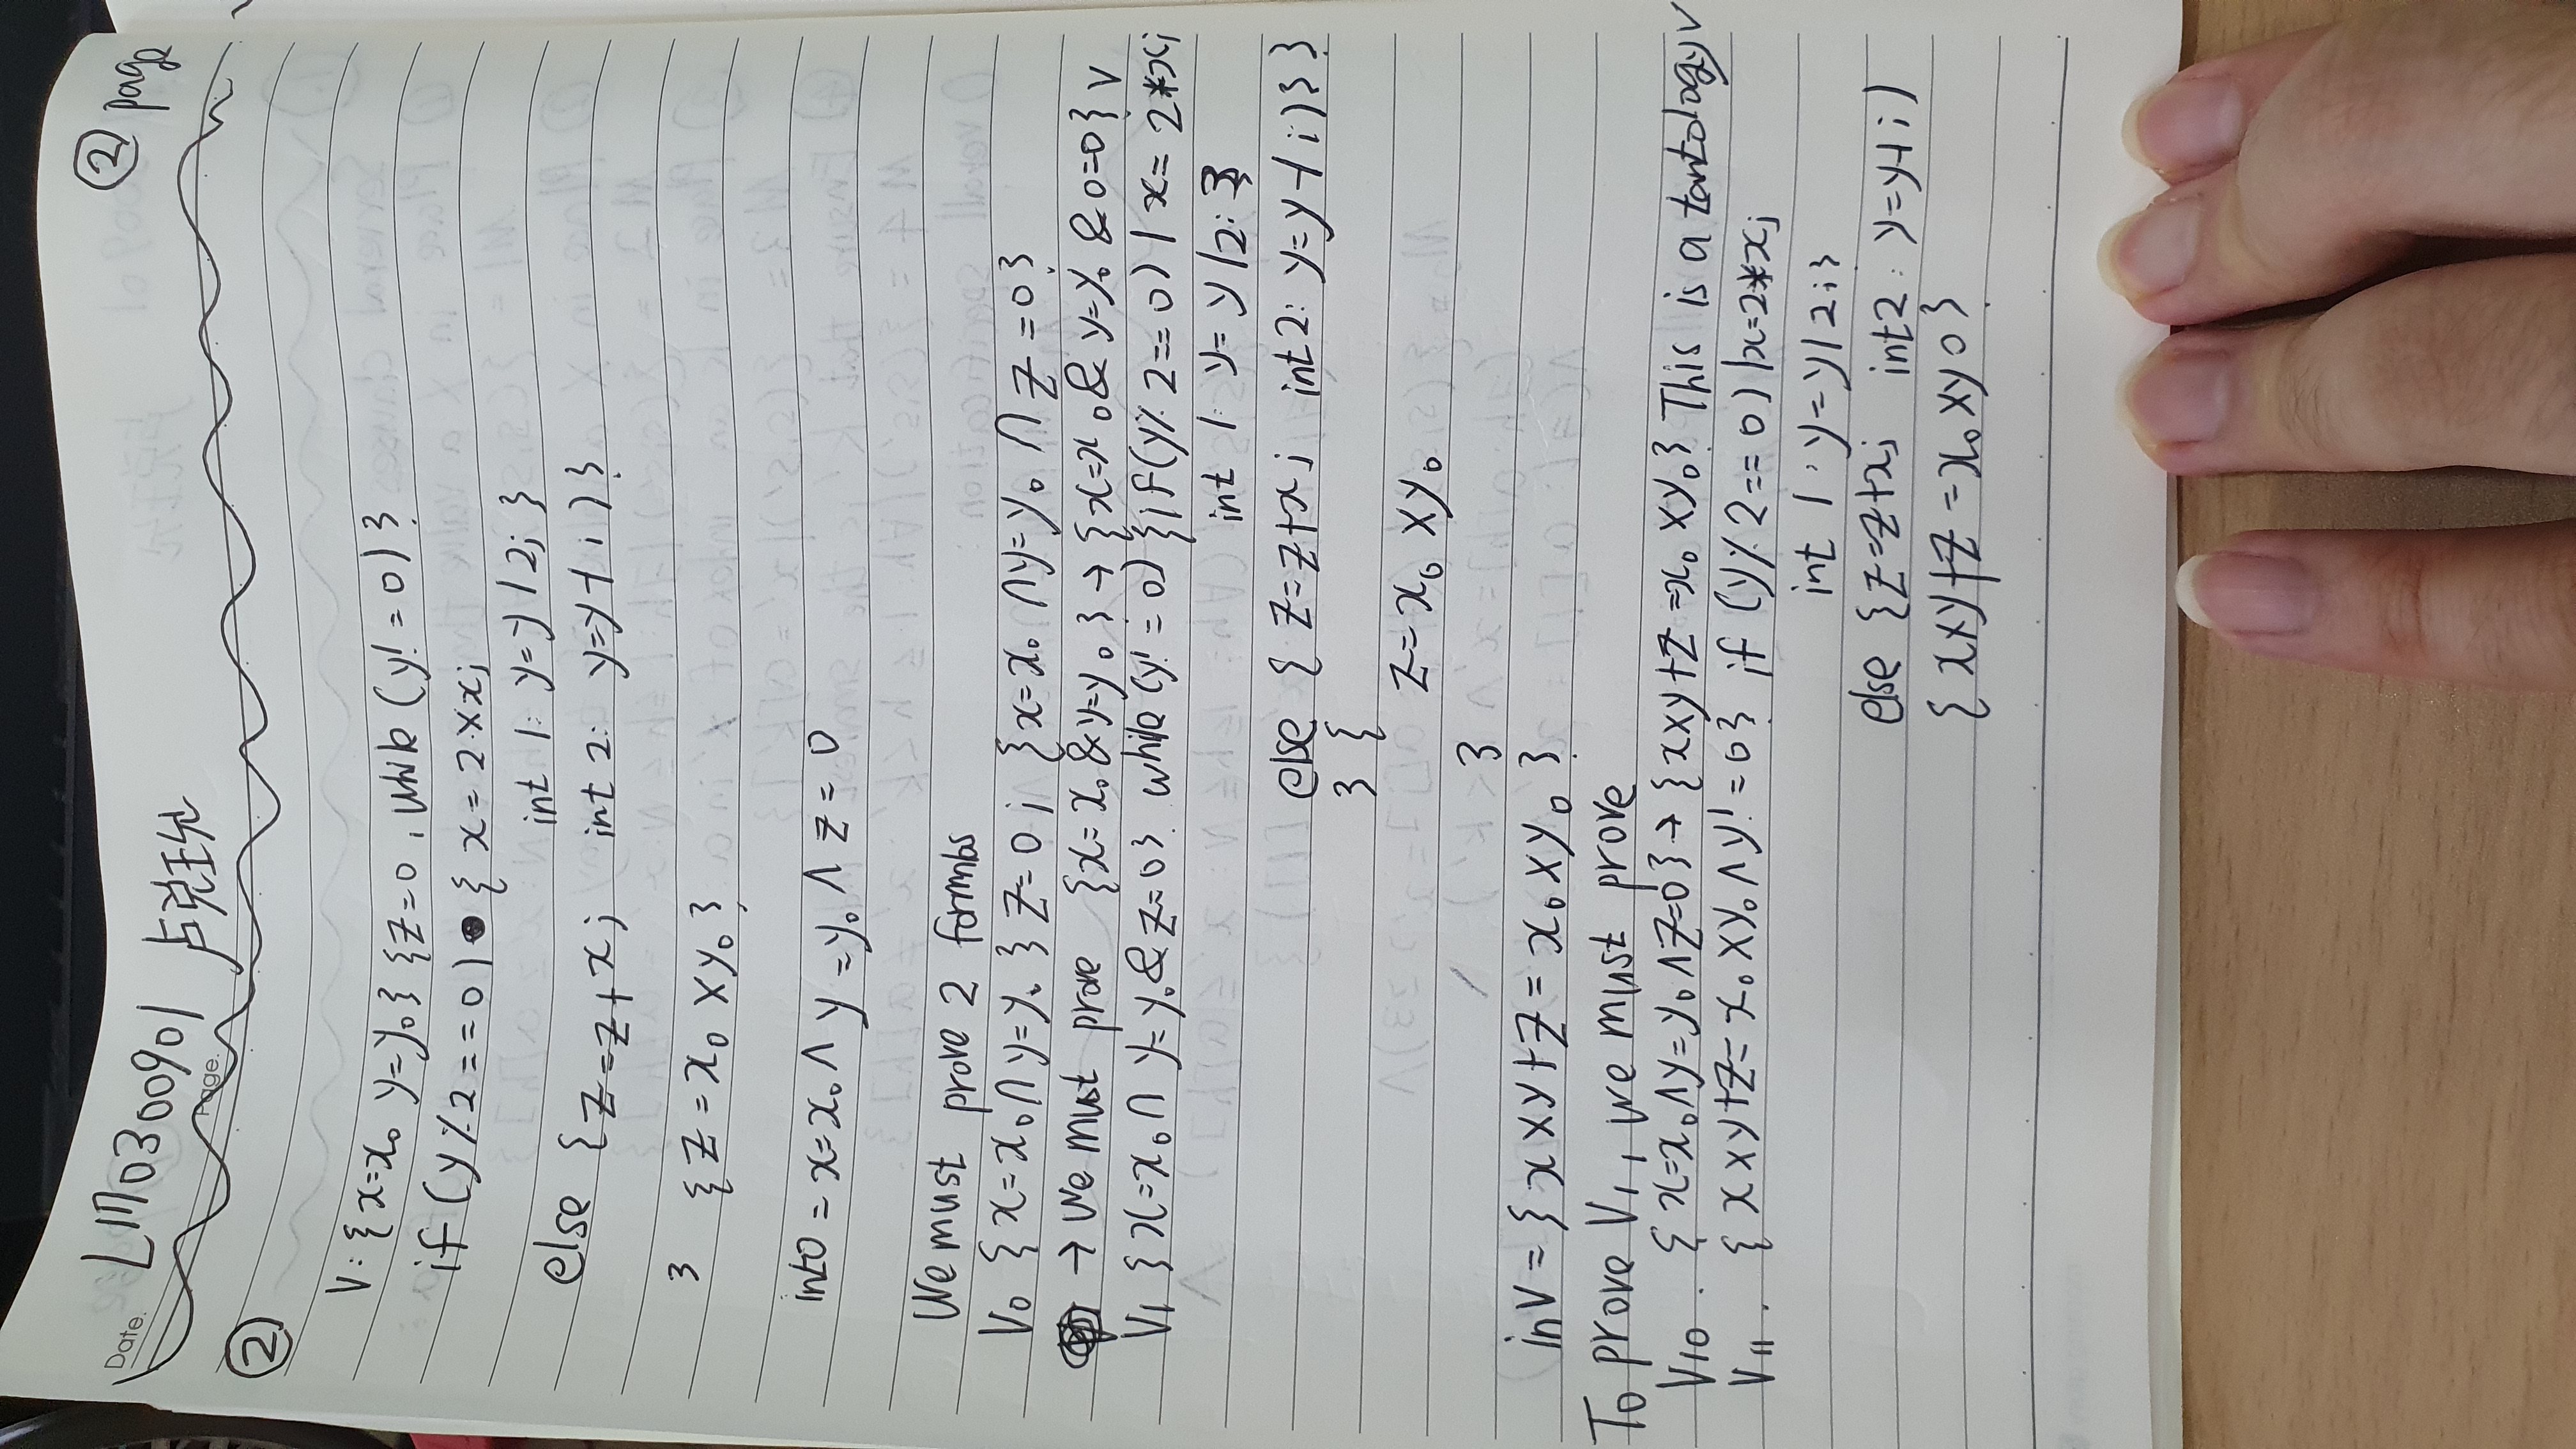 Date.
LM0300901 卢克王允
② page
Page.
②
V: {x=x₀ y=y₀} {z=0, while (y!=0)}
if (y%2==0) { x=2×x;
int 1: y=y/2; }
else {z=z+x; int 2: y=y-1;)}
} {z=x₀×y₀}
int0 = x=x₀ ∧ y=y₀ ∧ z=0
We must prove 2
V₀ {x=x₀∩y=y₀} z=0; {x=x₀∩y=y₀∩z=0}
→ We must prove {x=x₀&y=y₀} → {x=x₀& y=y₀ &0=0} v
V₁ {x=x₀∩y=y₀&z=0} while (y!=0) {if(y%2==0) | x=2*x;
int 1: y=y/2: }
else { z=z+x; int2: y=y-1;)} }
} {
z=x₀×y₀
}
inV = {x×y+z = x₀×y₀}
To prove V₁, we must prove
V₁₀. {x=x₀∧y=y₀∧z=0} → {x×y+z=x₀×y₀} This is a tantology v
V₁₁. {x×y+z=x₀×y₀∧y!=0} if (y%2==0) |x=2*x;
int 1: y=y/2;}
else {z=z+x; int2: y=y-1;)
{x×y+z=x₀×y0}